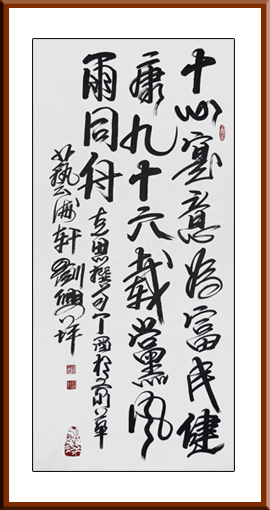 十心寔意為富民健
康九十六載黨風
雨同舟
思撰句丁酉於
藝海轩劉興